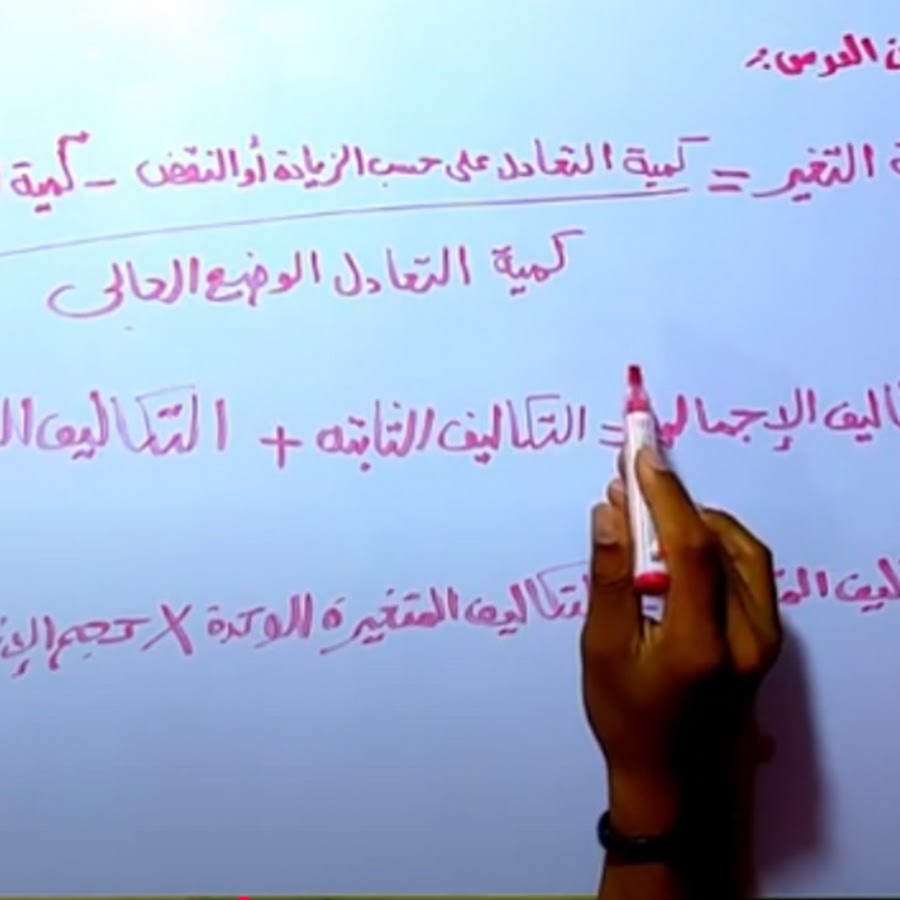 التغير = كمية التعادل على حسب الزيادة أو النقض - كمية
كمية التعادل الوضع الحالى
الإجمالية = التكاليف الثابته + التكاليف
التكاليف المتغيرة للوحدة X حجم